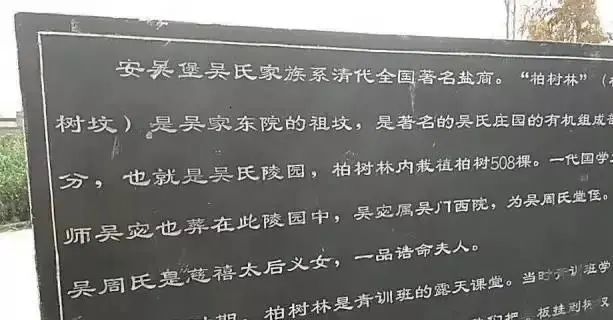 安吴堡吴氏家族系清代全国著名盐商。“柏树林”（
树坟）是吴家东院的祖坟，是著名的吴氏庄园的有机组成
分，也就是吴氏陵园，柏树林内栽植柏树508棵。一代国学
师吴宓也葬在此陵园中，吴宓属吴门西院，为吴周氏堂侄。
吴周氏是慈禧太后义女，一品诰命夫人。
期，柏树林是青训班的露天课堂。当时青训班学
板挂到树